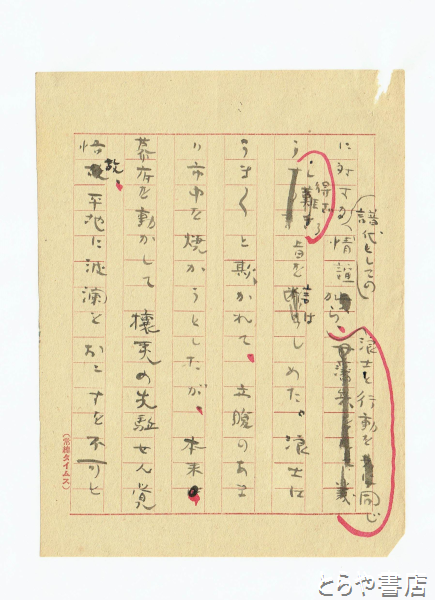 に対する(譜代としての)情誼から、浪士と行動を同じ
うし難き得ざる旨を言はしめた。浪士は
うまく と欺かれて、立腹のあま
り市中を焼かうとしたが、本来
幕府を動かして攘夷の先駆せん覚
悟故、平地に波瀾をおこすを不可と
(常総タイムス)
とらや書店